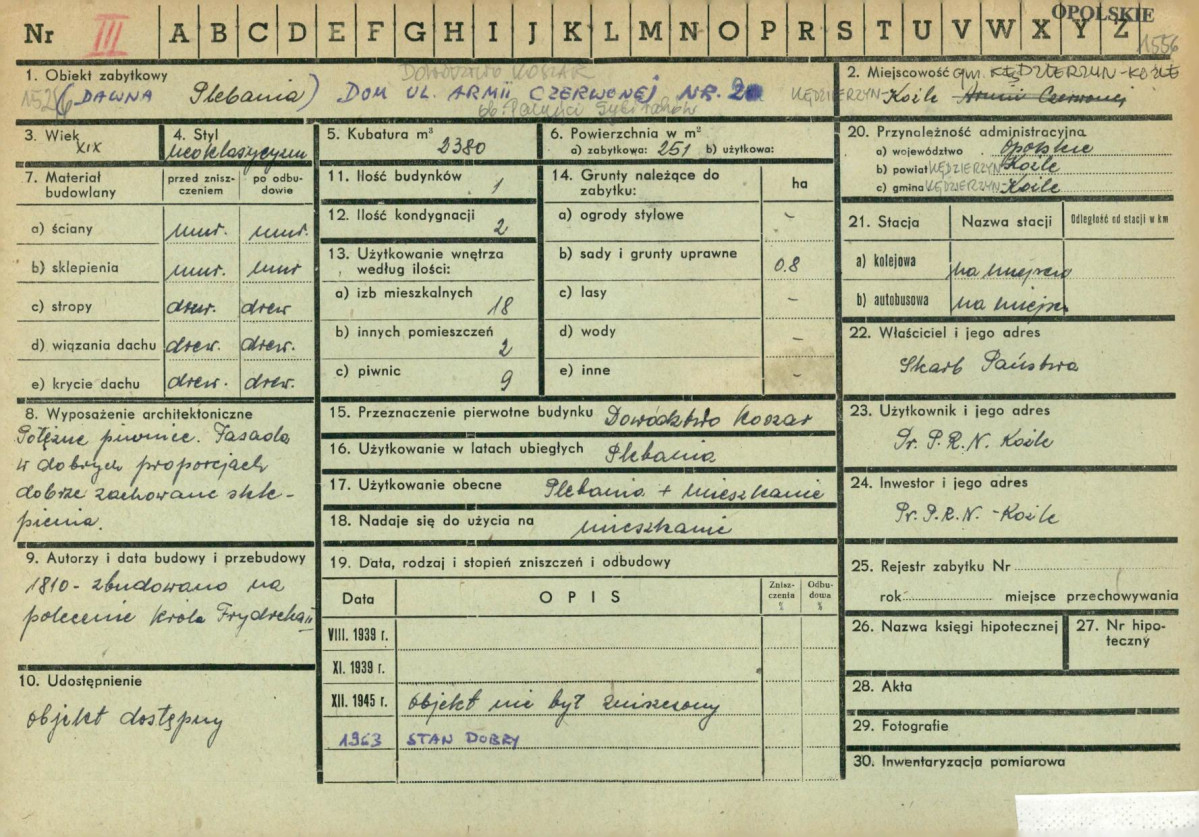 OPOLSKIE
Nr III A B C D E F G H I J K L M N O P R S T U V W X Y Z
1556
1. Obiekt zabytkowy
DOWÓDZTWO KOSZAR
(DAWNA Plebania) DOM UL. ARMII CZERWONEJ NR. 2
ob.
2. Miejscowość gm. KĘDZIERZYN-KOŹLE
KĘDZIERZYN-Koźle Armii Czerwonej
3. Wiek
XIX
4. Styl
neoklasycyzm
5. Kubatura m³
2380
6. Powierzchnia w m²
a) zabytkowa: 251 b) użytkowa:
7. Materiał budowlany
przed znisz-
czeniem
po odbu-
dowie
a) ściany mur. mur.
b) sklepienia mur. mur
c) stropy drew. drew
d) wiązania dachu drew. drew.
e) krycie dachu drew. drew.
8. Wyposażenie architektoniczne
Potężne piwnice. Fasada
w dobrych proporcjach
dobrze zachowane skle-
pienia.
9. Autorzy i data budowy i przebudowy
1810 - zbudowano na
polecenie króla Frydrcha II
10. Udostępnienie
objekt dostępny
11. Ilość budynków 1
12. Ilość kondygnacji 2
13. Użytkowanie wnętrza
według ilości:
a) izb mieszkalnych 18
b) innych pomieszczeń 2
c) piwnic 9
14. Grunty należące do
zabytku:
ha
a) ogrody stylowe -
b) sady i grunty uprawne 0.8
c) lasy -
d) wody -
e) inne -
15. Przeznaczenie pierwotne budynku Dowództwo koszar
16. Użytkowanie w latach ubiegłych Plebania
17. Użytkowanie obecne Plebania + mieszkanie
18. Nadaje się do użycia na mieszkanie
19. Data, rodzaj i stopień zniszczeń i odbudowy
Data OPIS
Znisz-
czenia
%
Odbu-
dowa
%
VIII. 1939 r.
XI. 1939 r.
XII. 1945 r. objekt nie był zniszczony
1963 STAN DOBRY
20. Przynależność administracyjna
a) województwo opolskie
b) powiat KĘDZIERZYN-Koźle
c) gmina KĘDZIERZYN-Koźle
21. Stacja Nazwa stacji Odległość od stacji w km
a) kolejowa na miejscu
b) autobusowa na miejscu
22. Właściciel i jego adres
Skarb Państwa
23. Użytkownik i jego adres
Pr. P.R.N. Koźle
24. Inwestor i jego adres
Pr. P.R.N. - Koźle
25. Rejestr zabytku Nr
rok miejsce przechowywania
26. Nazwa księgi hipotecznej
27. Nr hipo-
teczny
28. Akta
29. Fotografie
30. Inwentaryzacja pomiarowa